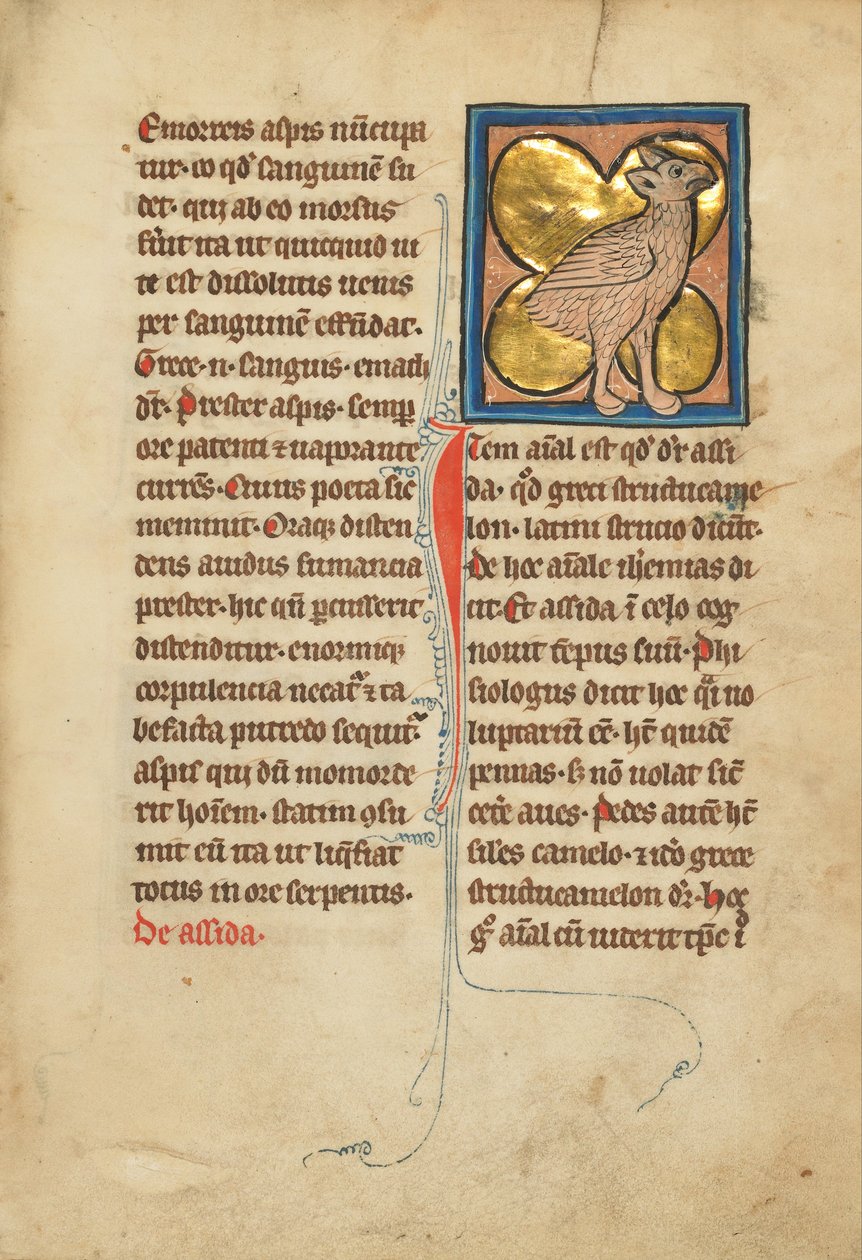 Emorreis aspis nu̅cupa
tur· eo qd̕ sanguine̅ su
det· qui ab eo morsus
fu̕it ita ut quicquid ui
te est dissolutis uenis
per sanguine̅ effu̅dat·
Grece· n· sanguis· emath
dr̅· Prester aspis· semp̲
ore patenti ⁊ uaporante
curre̅s· Cuius poeta sic
meminit· Oraq; disten
dens auidus fumancia
prester· hic qn̅ p̲cusserit
distenditur· enormiq;
corpulencia necat᷑ ⁊ ta
befacta putredo sequit᷑·
aspis qui du̅ momorde
rit hoi̅em· statim ꝯsu
mit eu̅ ita ut liq̅fiat
totus in ore serpentis·
De assida·
Item ai̅al est qd̕ dr̕ assi
da· qd̕ greci structucame
lon· latini strucio dicu̅t·
De hoc ai̅ale ih̕emias di
cit· Et assida i̅ celo cog
nouit te̅pus suu̅· Phi
siologus dicit hoc q̅i uo
luptariu̅ ee̅· ht̅ quide̅
pennas· s; no̅ uolat sic̅
cet̕e aues· Pedes aute̅ ht̅
sil̕es camelo· ⁊ id̕o grece
structucamelon dr̕· Hoc
gͦ ai̅al cu̅ uiderit tp̅c iͦ